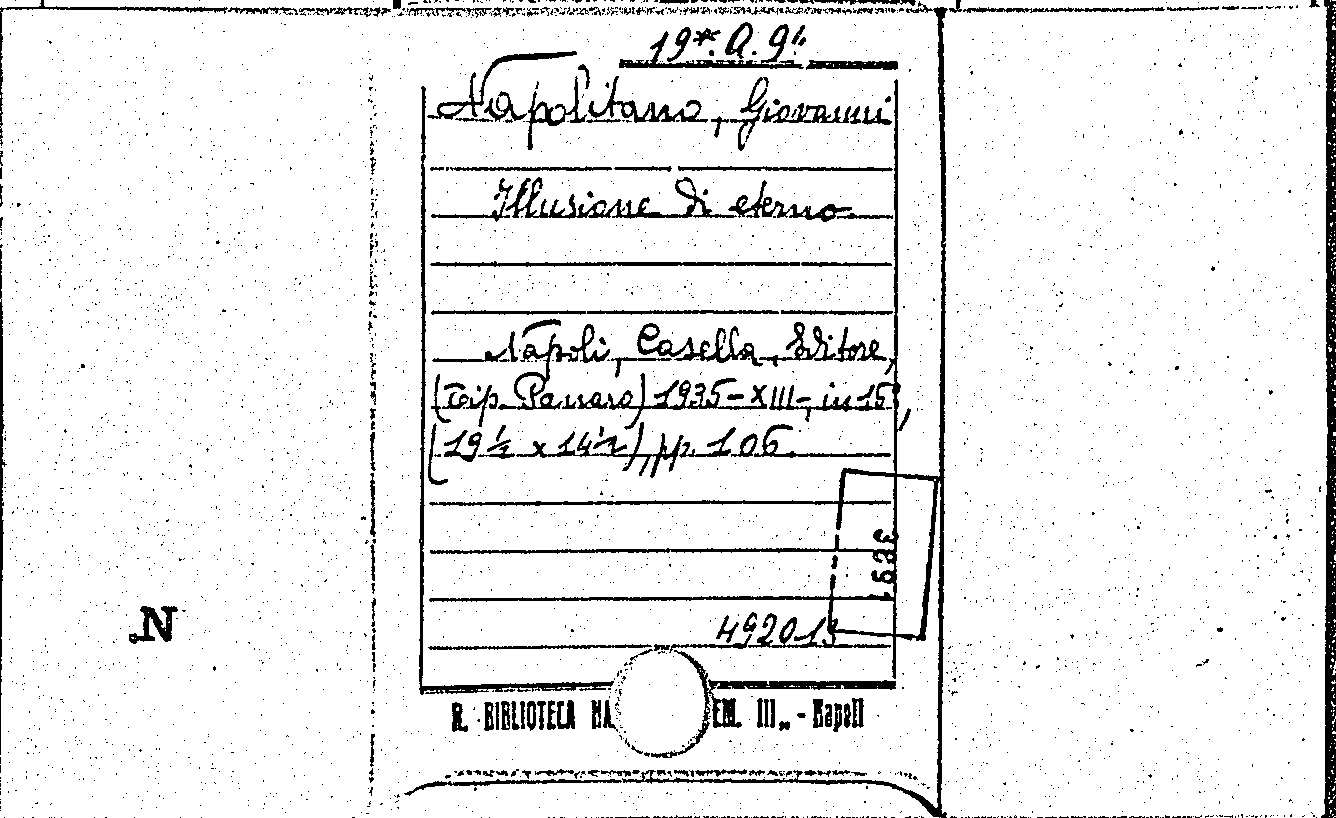 19*. A. 91.
Napolitano, Giovanni
Illusione di eterno
Napoli, Casella, Editore,
(Tip. Parraro) 1935-XIII-, in 16°,
(19½ x 14½), pp. 106.
1536
492013
N.
R. BIBLIOTECA NA EM. III„ - Napoli